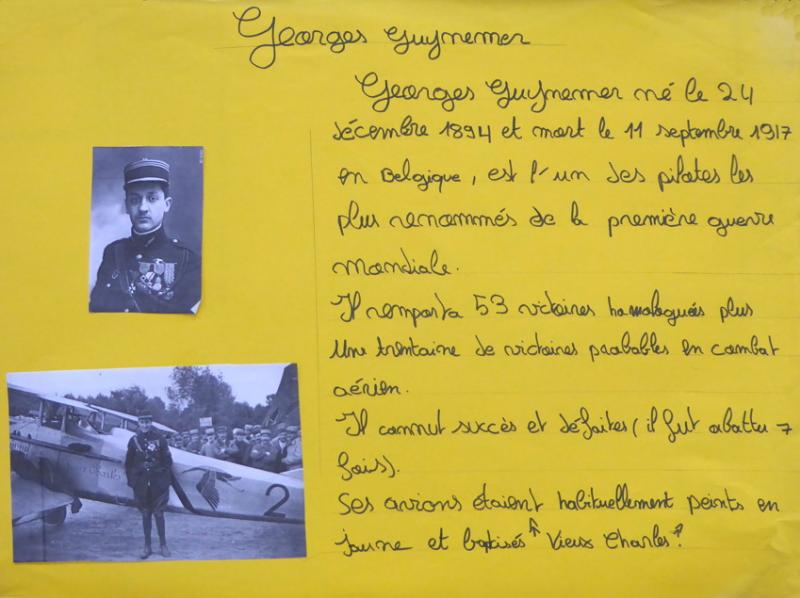 Georges Guynemer
Georges Guynemer né le 24
décembre 1894 et mort le 11 septembre 1917
en Belgique, est l'un des pilotes les
plus renommés de la première guerre
mondiale.
Il remporta 53 victoires homologuées plus
une trentaine de victoires probables en combat
aérien.
Il connut succès et défaites (il fut abattu 7
fois).
Ses avions étaient habituellement peints en
jaune et baptisés "Vieux Charles".
Vieux Charles
2